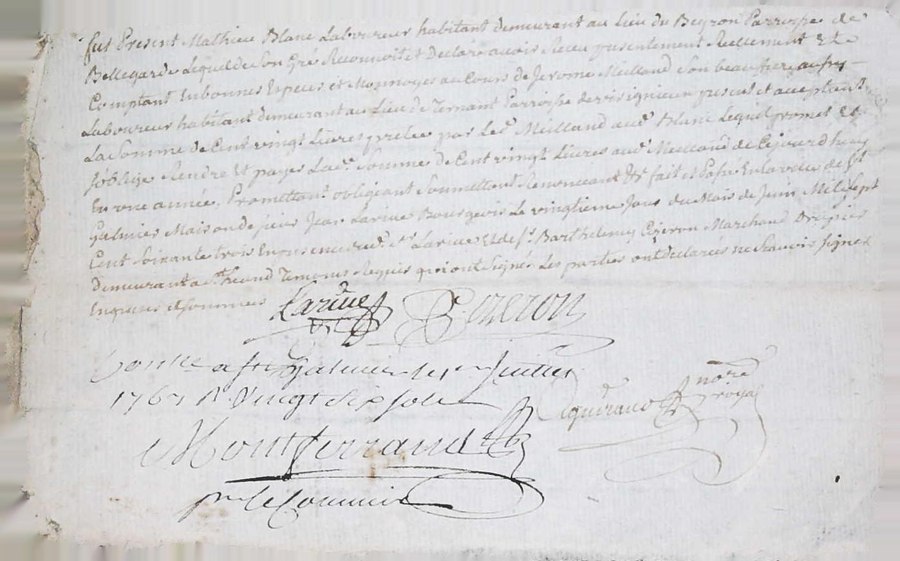 fut Present Mathieu Blanc Laboureur habitant demeurant au Lieu du Beyron Parroisse de
Bellegarde Lequel de Son Gré Reconnoit et Declare avoir Receu presentement Reellement &
Comptant En bonnes Especes et Monnoyes au Cours de Jerome Meilland Son beau frere aussy
Laboureur habitant demeurant au Lieu de Ternant Parroisse de present et acceptant
La Somme de Cent vingt Livres pretée par Led. Meilland aud. Blanc Lequel promet et
s'oblige Rendre et payer Lad. Somme de Cent vingt Livres aud. Meilland
En une année, Promettant obligeant Soumettant Renonceant &c fait et Passé En la ville de St
Galmier Maison de Jean Larive Bourgeois Le vingtieme Jour du Mois de Juin Mil Sept
Cent Soixante trois En presence dud. Sr. Larive Et de Sr. Barthelemy Ezeron Marchand
demeurant a St. Temoins Requis qui ont Signé. Les parties ont declarées ne Scavoir Signer
Enquises et Sommées
Larive B Ezeron
a St Galmier le Juillet
176 Rt Vingt six sols
nore
royal
Montferrand
pour le Commis